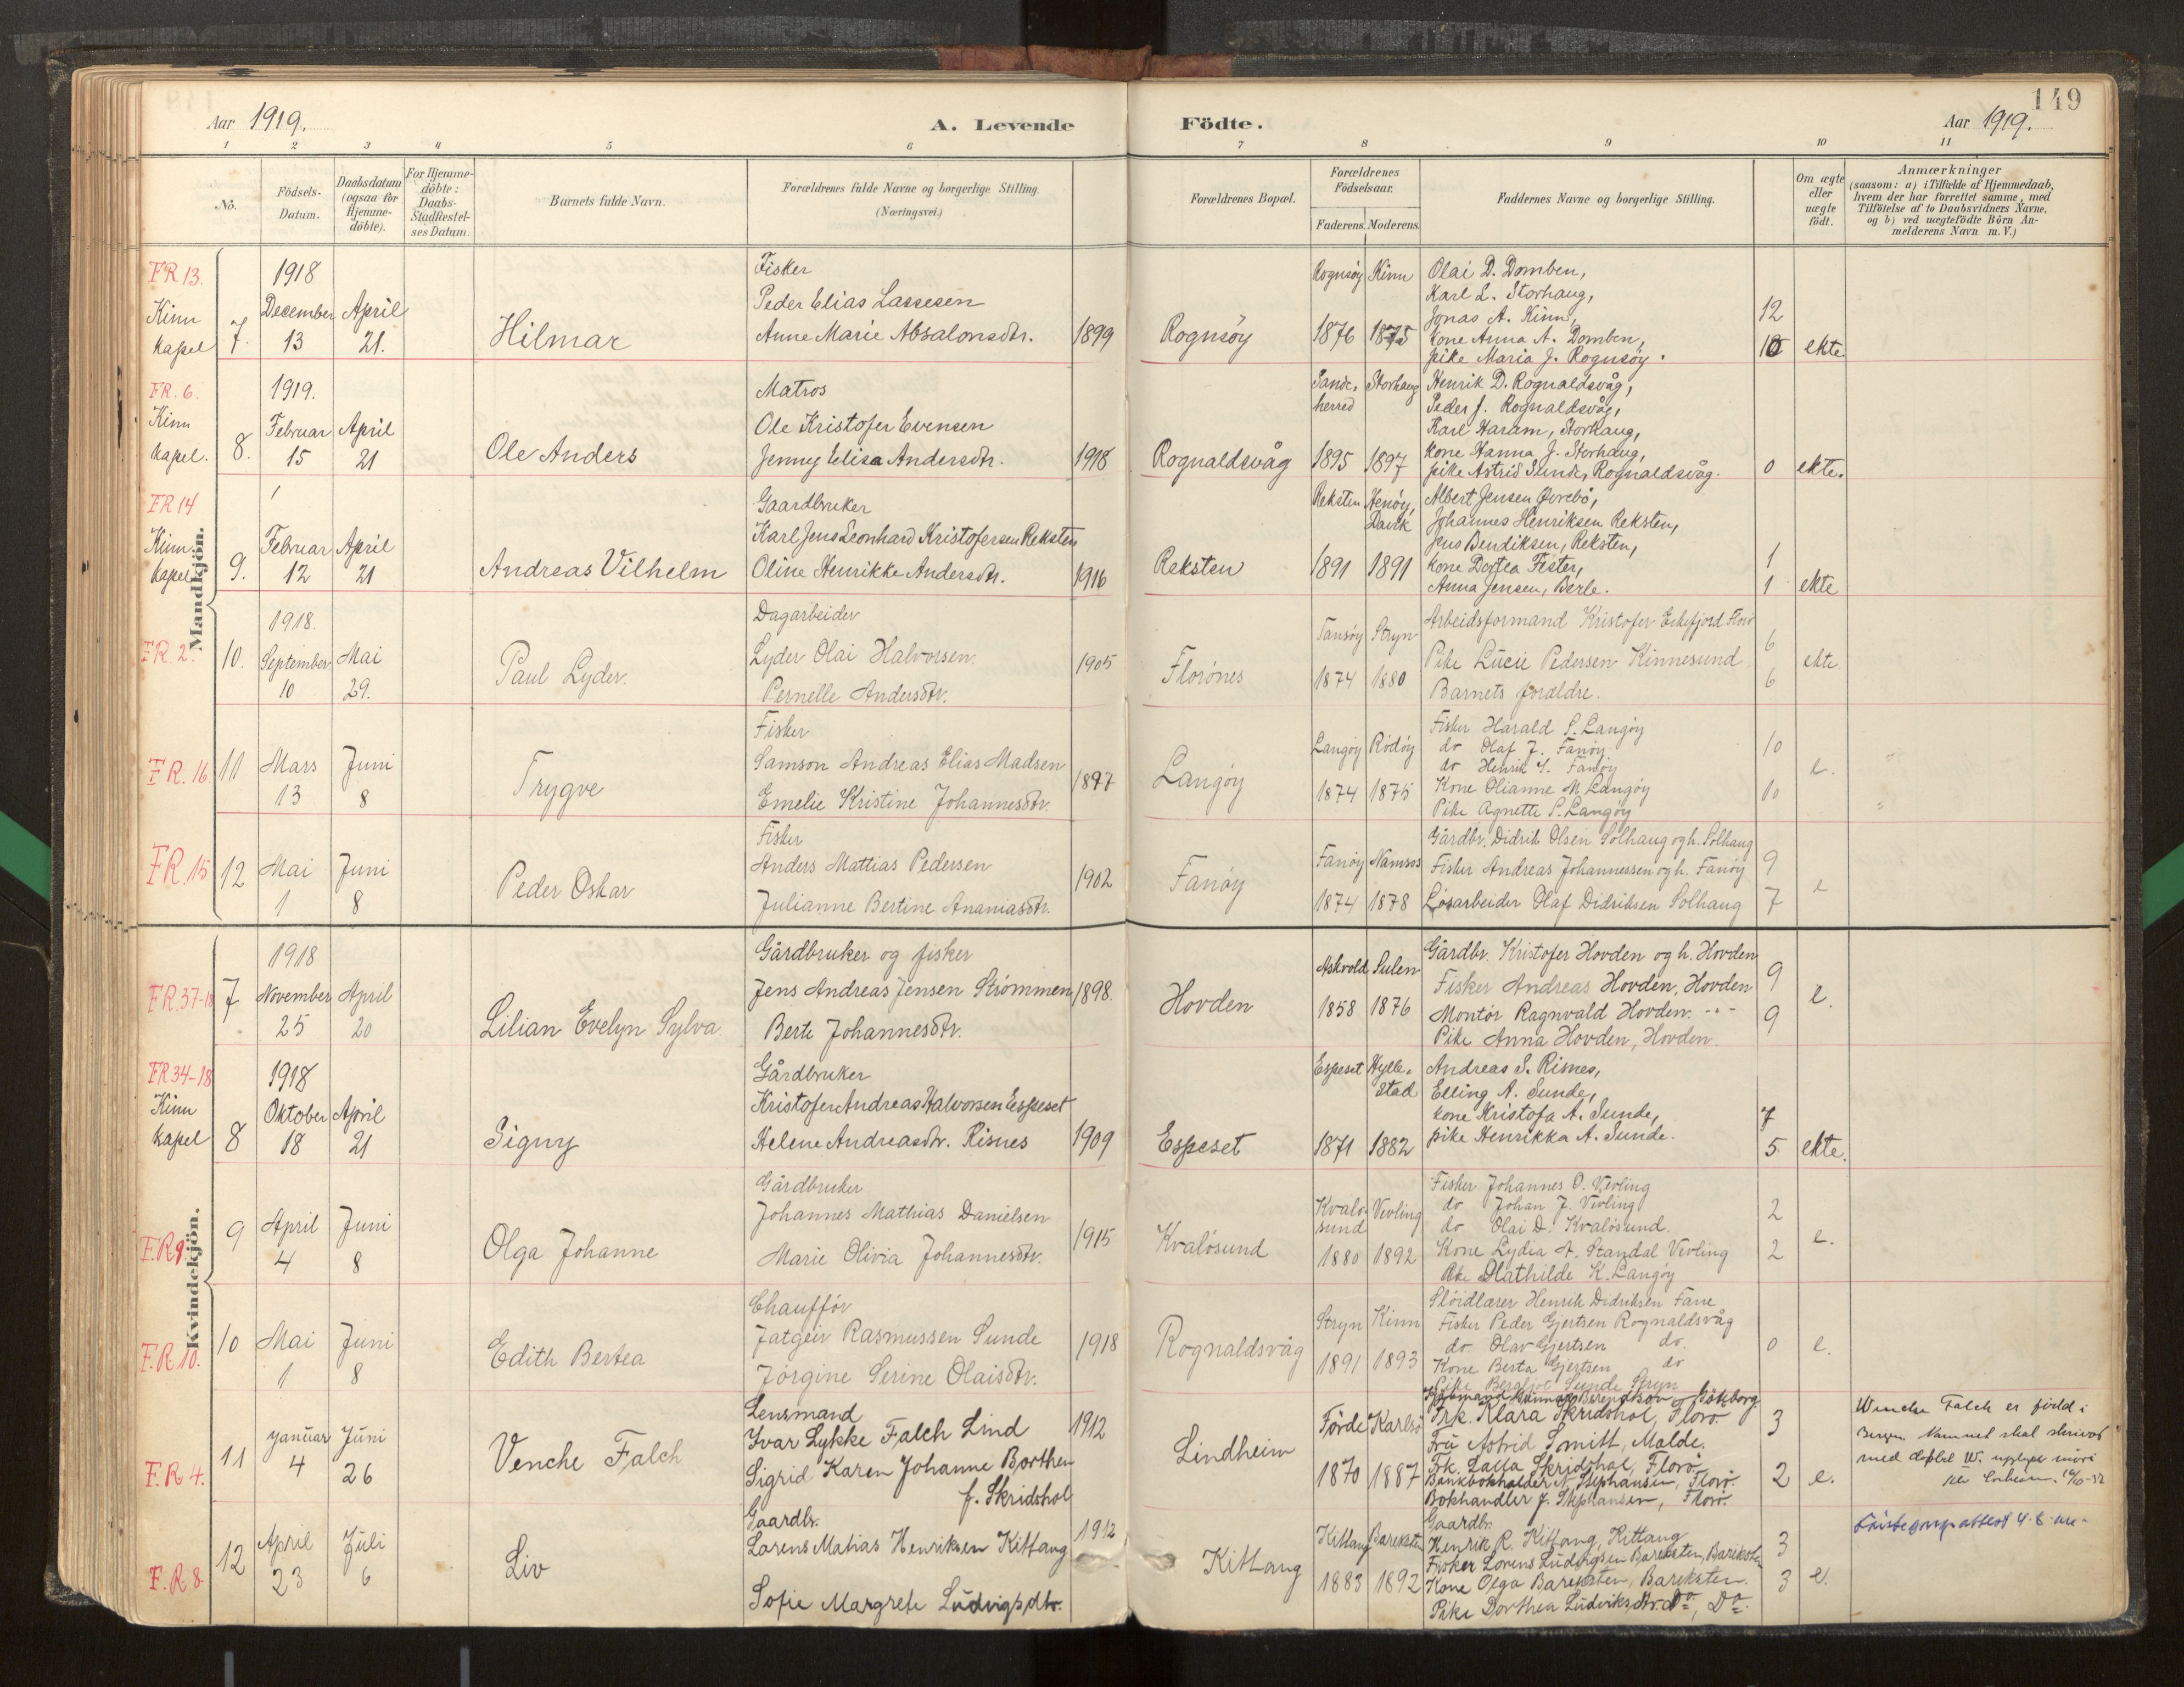 149
Aar 1919.
A. Levende
Födte.
Aar 1919.
1 2 3 4 5 6 7 8 9 10 11
No.
Födsels-
Datum.
Daabsdatum
(ogsaa for
Hjemme-
döbte).
For Hjemme-
döbte:
Daabs-
Stadfæstel-
ses Datum.
Barnets fulde Navn.
Forældrenes fulde Navne og borgerlige Stilling.
(Næringsvei.)
Forældrenes Bopæl.
Forældrenes
Födselsaar.
Faderens. Moderens.
Faddernes Navne og borgerlige Stilling.
Om ægte
eller
uægte
födt.
Anmærkninger
(saasom: a) i Tilfælde af Hjemmedaab,
hvem der har forrettet samme, med
Tilföielse af to Daabsvidners Navne.
og b) ved uægtefödte Börn An-
melderens Navn m. V.)
Mandkjön.
FR 13.
Kinn
kapel
7.
1918
December
13
April
21.
Hilmar
Fisker
Peder Elias Lassesen
Anne Marie Absalonsdtr.
1899
Rognsöy
Rognsöy Kinn
1876 1875
Olai D. Domben,
Karl L. Storhaug,
Jonas A. Kinn,
kone Anna A. Domben,
pike Maria J. Rognsöy.
12
10
ekte
FR. 6.
Kinn
kapel.
8.
1919.
Februar
15
April
21
Ole Anders
Matros
Ole Kristofer Evensen
Jenny Elisa Andersdtr.
1918
Rognaldsvåg
Sande-
herred
Storhaug
1895 1897
Henrik D. Rognaldsvåg,
Peder J. Rognaldsvåg,
Karl Haram, Storhaug,
kone Hanna J. Storhaug,
pike Astrid Sunde, Rognaldsvåg.
0
ekte.
FR 14
Kinn
kapel
9.
Februar
12
April
21
Andreas Vilhelm
Gaardbruker
Karl Jens Leonhard Kristofersen Reksten
Oline Henrikke Andersdtr.
1916
Reksten
Reksten Henöy,
Davik
1891 1891
Albert Jensen Øvrebö,
Johannes Henriksen Reksten,
Jens Bendiksen, Reksten,
kone Dortea Fester,
Anna Jensen, Berle.
1
1
ekte
FR. 2.
10.
1918.
September
10
Mai
29.
Paul Lyder.
Dagarbeider
Lyder Olai Halvorsen.
Pernelle Andersdtr.
1905
Florönes
Tansöy Stryn
1874 1880
Arbeidsformand Kristofer Eikefjord Florö
Pike Lucie Pedersen Kinnesund
Barnets forældre.
6
6
ekte.
FR. 16.
11
Mars
13
Juni
8
Trygve
Fisker
Samson Andreas Elias Madsen
Emelie Kristine Johannesdtr.
1897
Langöy
Langöy Rödöy
1874 1875
Fisker Harald S. Langöy
do Olaf J. Fanöy
do Henrik S. Fanöy
Kone Olianne M. Langöy
Pike Agnette S. Langöy
10
10
e.
FR. 15
12
Mai
1
Juni
8
Peder Oskar
Fisker
Anders Mattias Pedersen
Julianne Bertine Ananiasdtr.
1902
Fanöy
Fanöy Namsos
1874 1878
Gårdbr. Didrik Olsen Solhaug og h. Solhaug
Fisker Andreas Johannessen og h. Fanöy
Løsarbeider Olaf Didriksen Solhaug
9
7
e
Kvindekjön.
FR 37-18
7
1918
November
25
April
20
Lilian Evelyn Sylva
Gårdbruker og fisker
Jens Andreas Jensen Strömmen
Berte Johannesdtr.
1898.
Hovden
Askvold Sulen
1858 1876
Gårdbr. Kristofer Hovden og h. Hovden
Fisker Andreas Hovden, Hovden
Montör Ragnvald Hovden. -"-
Pike Anna Hovden, Hovden.
9
9
e.
FR 34-18
Kinn
kapel
8
1918
Oktober
18
April
21
Signy
Gårdbruker
Kristofer Andreas Halvorsen Espeset
Helene Andreasdtr. Risnes
1909
Espeset
Espeset Hylle-
stad
1871 1882
Andreas S. Risnes,
Elling A. Sunde,
kone Kristofa A. Sunde,
pike Henrikka A. Sunde.
7
5
ekte.
F.R 9.
9
April
4
Juni
8
Olga Johanne
Gårdbruker
Johannes Mathias Danielsen
Marie Olivia Johannesdtr.
1915
Kvalösund
Kvalö-
sund
Vevling
1880 1892
Fisker Johannes O. Vevling
do Johan J. Vevling
do Olai D. Kvalösund.
Kone Lydia A. Standal Vevling
Pike Mathilde K. Langöy
2
2
e.
F.R 10.
10
Mai
1
Juni
8
Edith Bertea
Chaufför
Jatgeir Rasmussen Sunde
Jörgine Serine Olaisdtr.
1918
Rognaldsvåg
Stryn Kinn
1891 1893
Slöidlærer Henrik Didriksen Fane
Fisker Peder Gjertsen Rognaldsvåg
do Olav Gjertsen do.
Kone Berta Gjertsen do
Pike Bergljot Sunde Stryn
0
e.
F.R 4.
11
Januar
4
Juni
26
Venche Falch
Lensmand
Ivar Lykke Falch Lind
Sigrid Karen Johanne Borthen
f. Skridshol
1912
Lindheim
Förde Karlsö
1870 1887
Frk. Klara Skridshol, Florö
Frü Astrid Smitt, Molde.
Frk. Lalla Skridshol, Florö
Bankbokholder N. Stephansen, Florö.
Bokhandler J. Stephansen, Florö.
3
2
e.
Wenche Falch er född i
Bergen. Navnet skal skrives
med dobbel W.
F.R 8.
12
April
23
Juli
6
Liv
Gaardbr.
Lorens Matias Henriksen Kittang
Sofie Margrete Ludvigsdtr.
1912
Kittang
Kittang Bareksten
1883 1892
Gaardbr.
Henrik R. Kittang, Kittang
Fisker Lorens Ludvigsen Bareksten, Bareksten
Kone Olga Bareksten, Bareksten.
Pike Dorthea Ludviksdtr. Do, Do.
3
3
e.